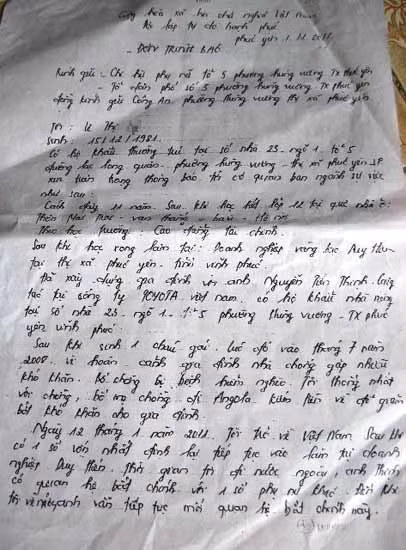 Cộng hòa xã hội chủ nghĩa Việt Nam
Độc lập tự do hạnh phúc
phúc yên 1. 11. 2011
- ĐƠN TRÌNH BÁO
Kính gửi - Chi hội phụ nữ tổ 5 phường hùng vương TX phúc yên
- Tổ dân phố số 5 phường hùng vương. TX phúc yên
đồng kính gửi Công An phường hùng vương thị xã phúc yên
Tôi : Lê Thị
Sinh : 15/12/1981.
Có hộ khẩu thường trú tại số nhà 23 - ngõ 1 - tổ 5
đường lạc long quân - phường hùng vương - thị xã phúc yên
xin trân trọng thông báo tới cơ quan ban ngành sự việc
như sau :
Cách đây 11 năm. Sau khi học hết lớp 12 tại quê nhà ở:
Thôn
Theo học trường : Cao đẳng tài chính.
Sau khi học xong làm tại : Doanh nghiệp vàng bạc Duy Hiền
tại thị xã phúc yên - tỉnh vĩnh phúc.
Đã xây dựng gia đình với anh Nguyễn Tiến Thịnh
tác tại công ty TOYOTA việt nam. có hộ khẩu
tại số nhà 23 - ngõ 1 - tổ 5 phường hùng vương - TX phúc
yên vĩnh phúc.
Sau khi sinh 1 cháu gái. lúc đó vào tháng 7 năm
2008 vì hoàn cảnh gia đình nhà chồng gặp nhiều
khó khăn. Bố chồng bị bệnh hiểm nghèo. Tôi thống nhất
với chồng, bố mẹ chồng đi Angola. kiếm tiền về để giảm
bớt khó khăn cho gia đình.
Ngày 12 tháng 1 năm 2011. Tôi trở về Việt Nam. Sau khi
có 1 số vốn nhất định lại tiếp tục vào làm tại doanh
nghiệp Duy Hiền. Thời gian tôi đi nước ngoài, anh Thịnh
có quan hệ bất chính với 1 số phụ nữ khác. Đến khi
tôi về nước anh vẫn tiếp tục mối quan hệ bất chính này.